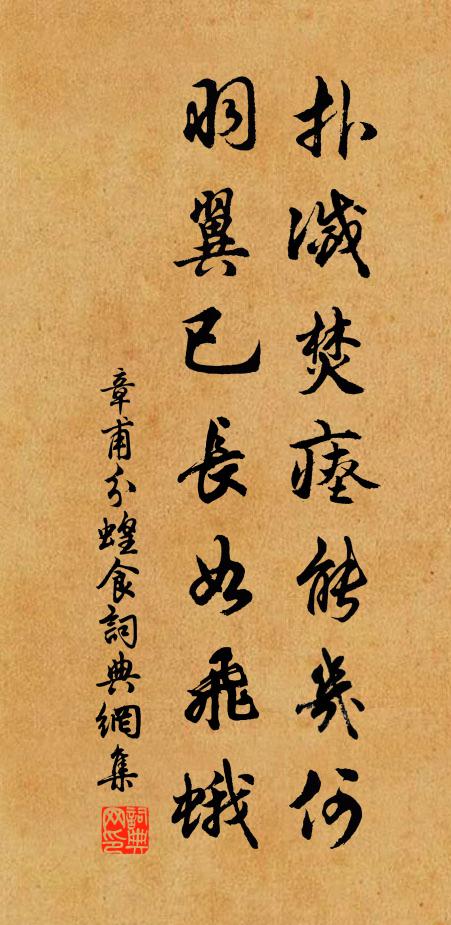 扑滅焚瘞能幾何
羽翼已長如飛蛾
章甫分蝗食詞典網集
詞典网印